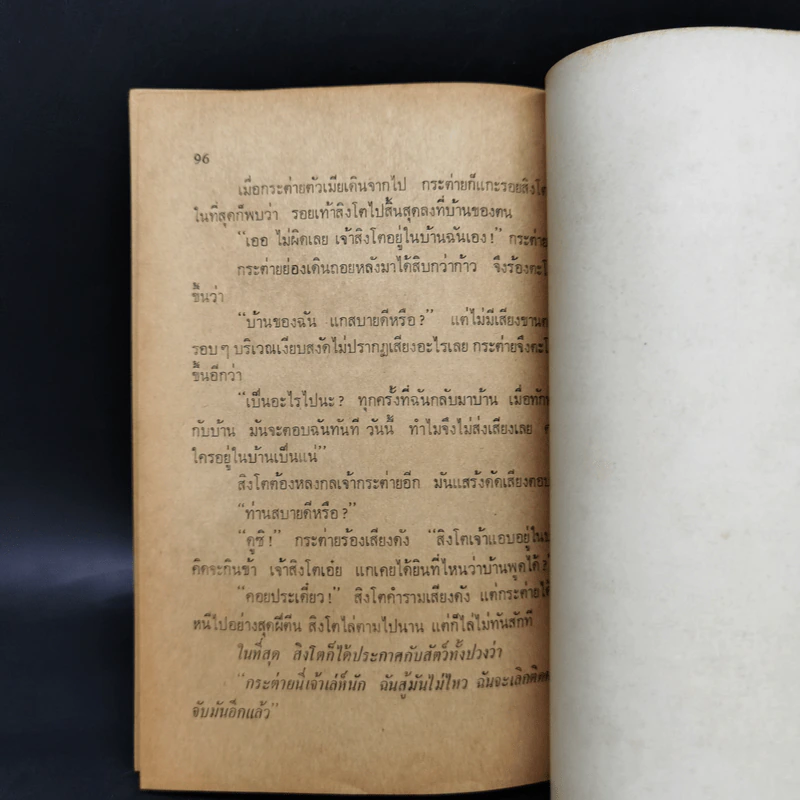 96
เมื่อกระต่ายตัวเมียเดินจากไป กระต่ายก็แกะรอยสิงโต
ในที่สุดก็พบว่า รอยเท้าสิงโตไปสิ้นสุดลงที่บ้านของตน
“เออ ไม่ผิดเลย เจ้าสิงโตอยู่ในบ้านฉันเอง!” กระต่าย
กระต่ายย่องเดินถอยหลังมาได้สิบกว่าก้าว จึงร้องตะโ
ขึ้นว่า
“บ้านของฉัน แกสบายดีหรือ?” แต่ไม่มีเสียงขานต
รอบๆ บริเวณเงียบสงัดไม่ปรากฏเสียงอะไรเลย กระต่ายจึงตะโ
ขึ้นอีกว่า
“เป็นอะไรไปนะ? ทุกครั้งที่ฉันกลับมาบ้าน เมื่อทัก
กับบ้าน มันจะตอบฉันทันที วันนี้ ทำไมจึงไม่ส่งเสียงเลย
ใครอยู่ในบ้านเป็นแน่”
สิงโตต้องหลงกลเจ้ากระต่ายอีก มันแสร้งดัดเสียงตอบ
“ท่านสบายดีหรือ?”
“ดูซิ!” กระต่ายร้องเสียงดัง “สิงโตเจ้าแอบอยู่ใน
คิดจะกินข้า เจ้าสิงโตเอ๋ย แกเคยได้ยินที่ไหนว่าบ้านพูดได้?
“คอยประเดี๋ยว!” สิงโตคำรามเสียงดัง แต่กระต่ายได้
หนีไปอย่างสุดฝีตีน สิงโตไล่ตามไปนาน แต่ก็ไล่ไม่ทันสักที
ในที่สุด สิงโตก็ได้ประกาศกับสัตว์ทั้งปวงว่า
“กระต่ายนี่เจ้าเล่ห์นัก ฉันสู้มันไม่ไหว ฉันจะเลิกคิด
จับมันอีกแล้ว”